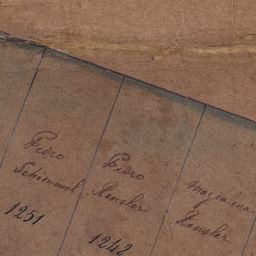 Pedro
Schimanel
1251
Pedro
Kensler
1248
Magdalena
Kensler